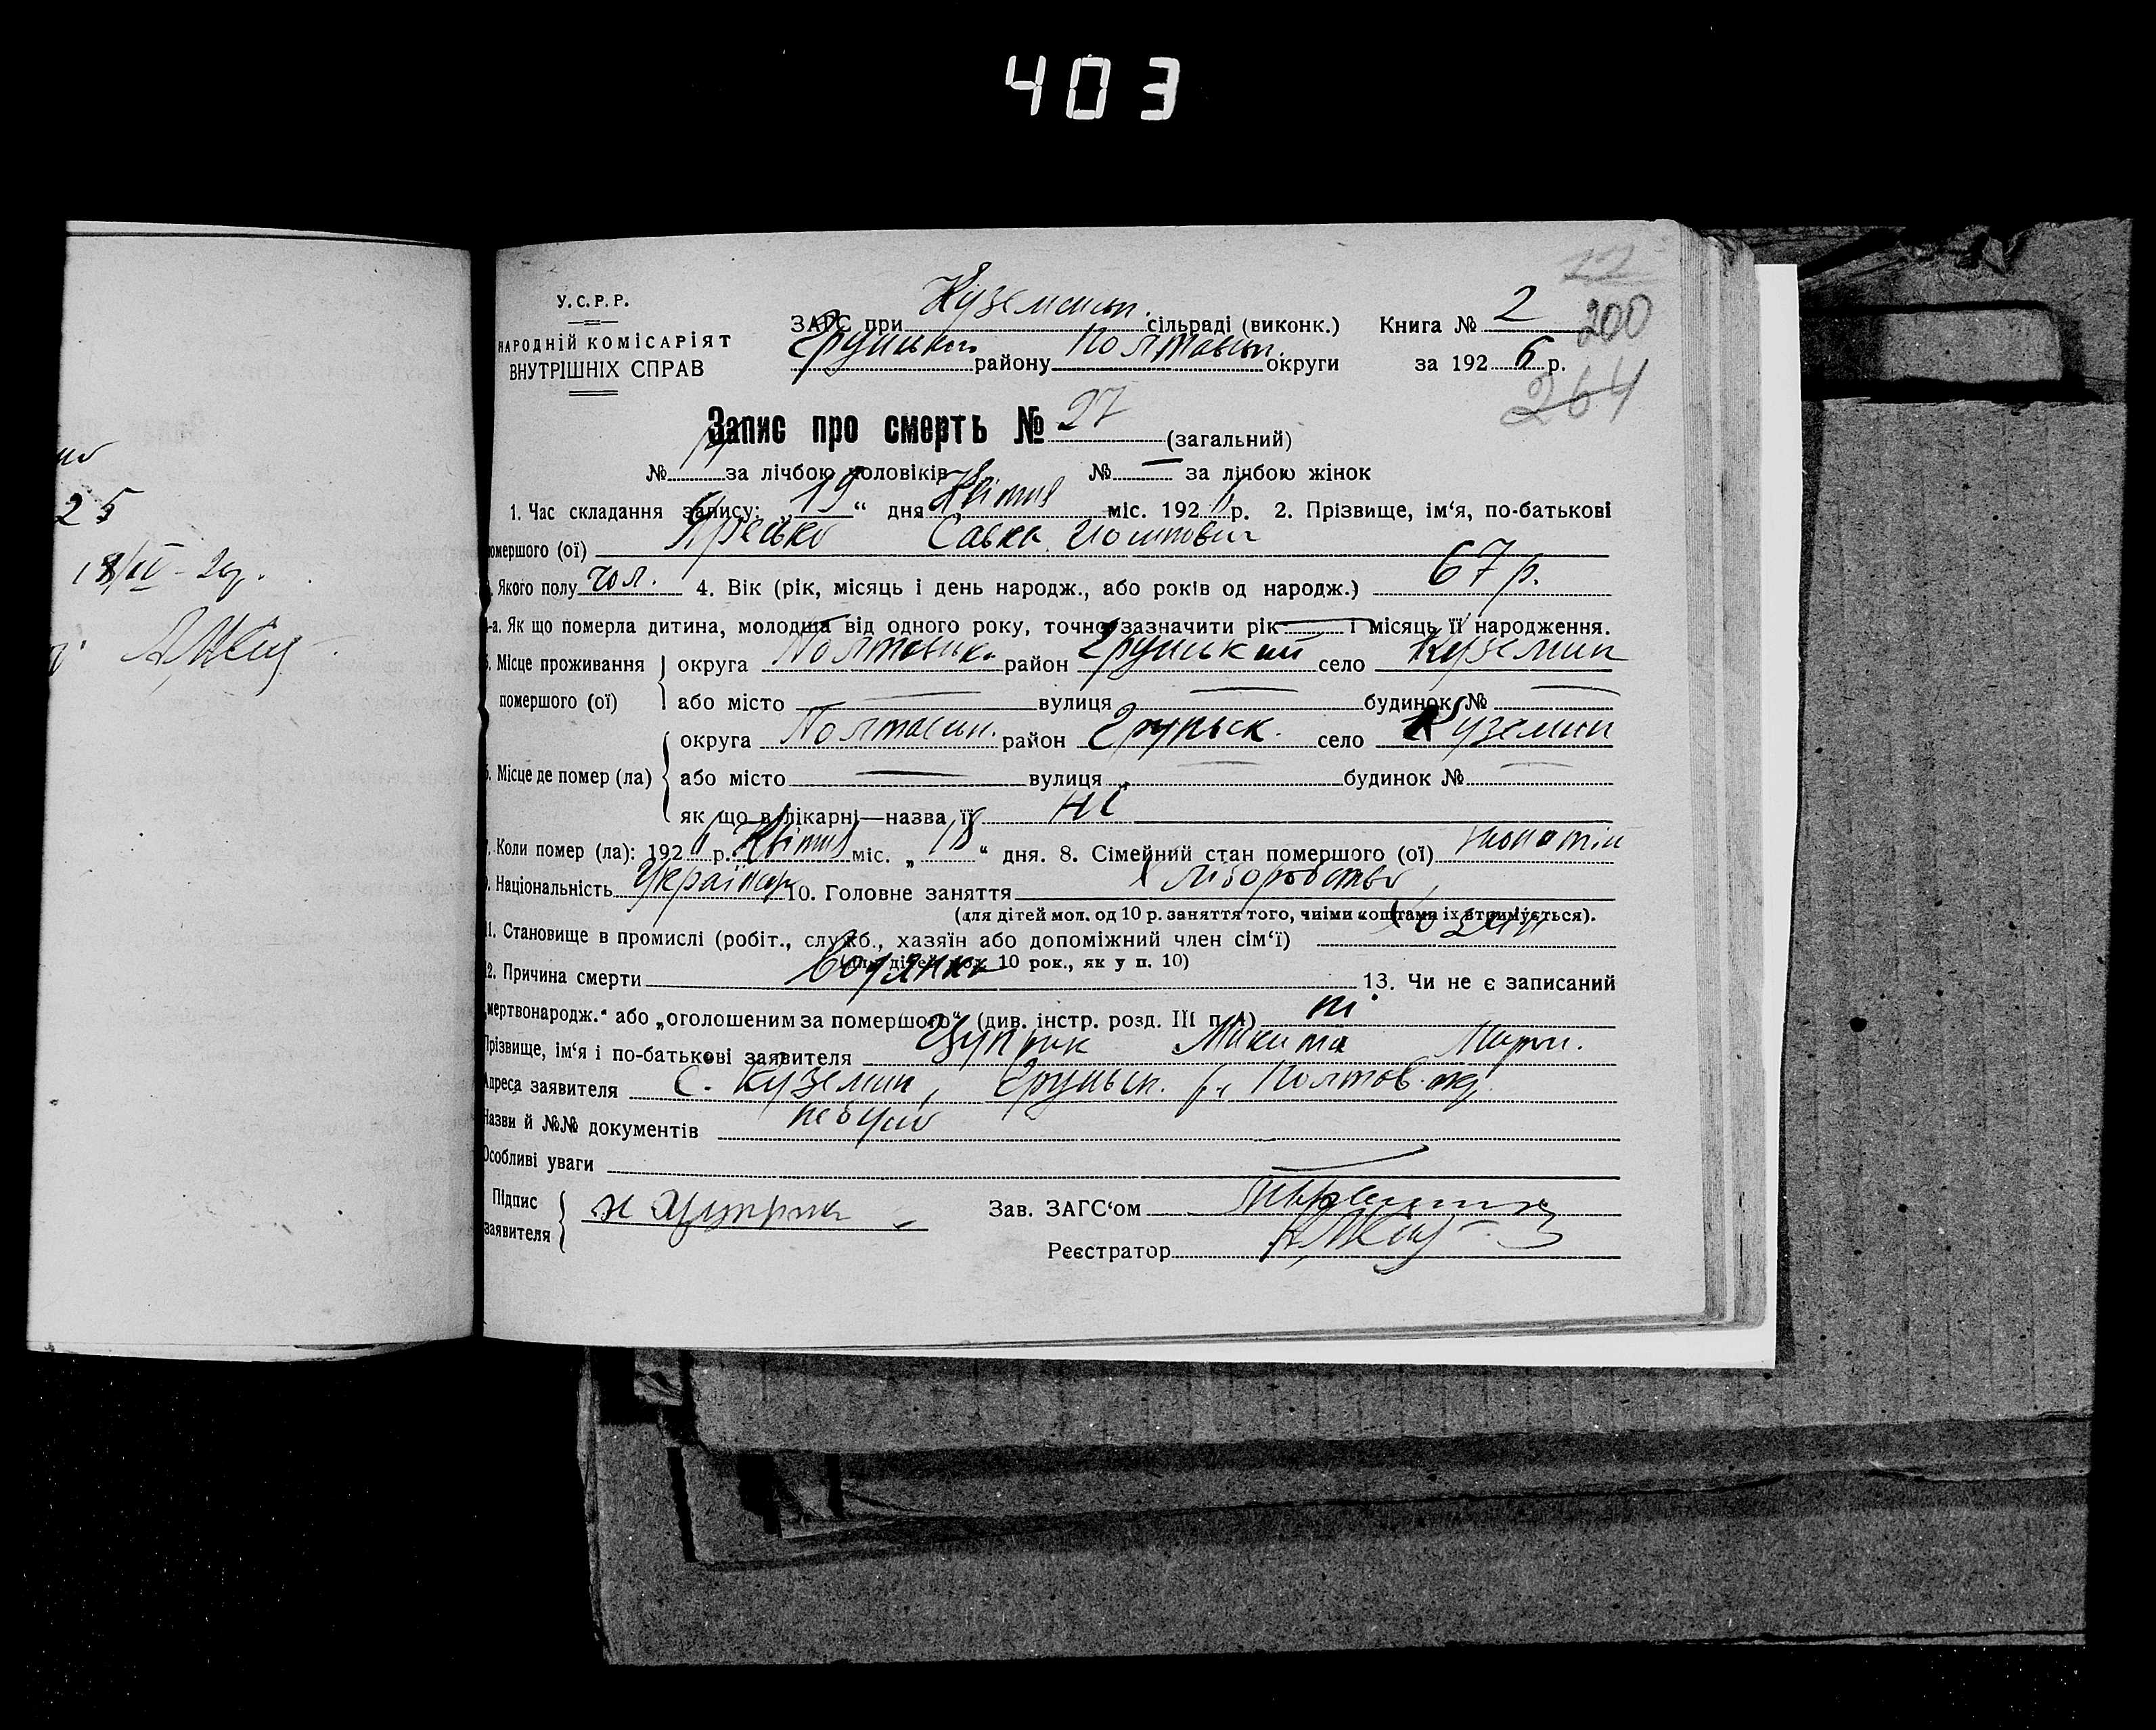 403
22
У.С.Р.Р.
НАРОДНІЙ КОМІСАРІЯТ
ВНУТРІШНІХ СПРАВ
ЗАГС при Куземськ. сільраді (виконк.) Книга № 2
200
району Полтавськ. округи за 1926 р.
264
Запис про смерть № 27 (загальний)
№ за лічбою чоловіків № — за лічбою жінок
1. Час складання запису: „19“ дня Квітня міс. 1926 р. 2. Прізвище, ім‘я, по-батькові
помершого (ої) Яресько Савка
Якого полу чол. 4. Вік (рік, місяць і день народж., або років од народж.) 67 р.
-а. Як що померла дитина, молодша від одного року, точно зазначити рік — і місяць її народження.
Місце проживання округа Полтавська район Грунський село Куземин
помершого (ої) або місто — вулиця — будинок № —
округа Полтавськ. район Груньск. село Куземин
Місце де помер (ла) або місто — вулиця — будинок № —
як що в лікарні—назва її ні
Коли помер (ла): 1926 р. Квітня міс. „18“ дня. 8. Сімейний стан помершого (ої)
Національність Українець 10. Головне заняття Хліборобство
(для дітей мол. од 10 р. заняття того, чиїми коштами їх втримується).
11. Становище в промислі (робіт., служб., хазяїн або допоміжний член сім‘ї)
(для дітей мол. 10 рок., як у п. 10)
12. Причина смерти Водянка 13. Чи не є записаний
„мертвонародж.“ або „оголошеним за помершого“ (див. інстр. розд. III п. А) ні
Прізвище, ім‘я і по-батькові заявителя Цуприк Микита
Адреса заявителя с. Куземин, Груньськ. р. Полтов. окр.
Назви й №№ документів не було
Особливі уваги —
Підпис
заявителя
Зав. ЗАГС‘ом
Реєстратор
25